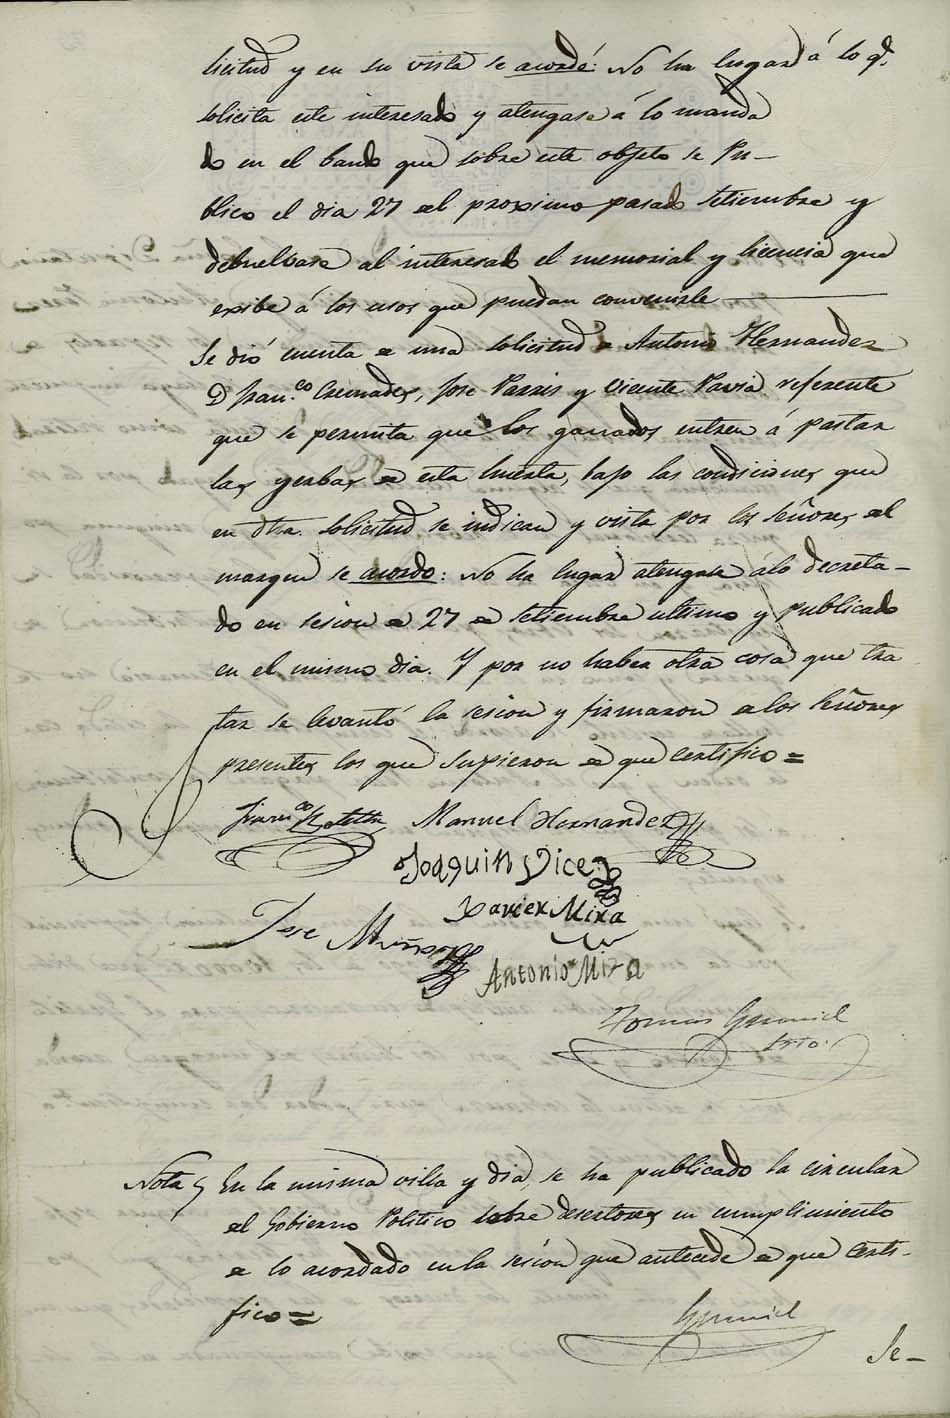 licitud y en su vista se acordó: No ha lugar á lo q.
solicita este interesado y atengase á lo manda
do en el bando que sobre este objeto se Pu-
blico el dia 27 del proximo pasado Setiembre y
debuelvase al interesado el memorial y licencia que
exibe á los usos que puedan convenirle
Se dió cuenta de una solicitud de Antonio Hernandez
D Fran.co Cremades, Jose Parris y Vicente Pavia referente
que se permita que los ganados entren á pastar
las yerbas de esta huerta, bajo las condiciones que
en dha. solicitud se indican y vista por los Señores del
margen se acordo: No ha lugar atengase álo decreta-
do en sesion de 27 de Setiembre ultimo y publicado
en el mismo dia. Y por no haber otra cosa que tra
tar se levantó la sesion y firmaron de los Señores
presentes los que supieron de que certifico =
Fran.co Botella Manuel Hernandez
Joaquin Vice
Xavier Mira
Jose Muñoz
Antonio Mira
Tomas Gomiel
Srio.
Nota En la misma villa y dia, se ha publicado la circular
del Gobierno Politico sobre desertores en cumplimiento
de lo acordado en la sesion que antecede de que certi-
fico =
Gomiel
Se-